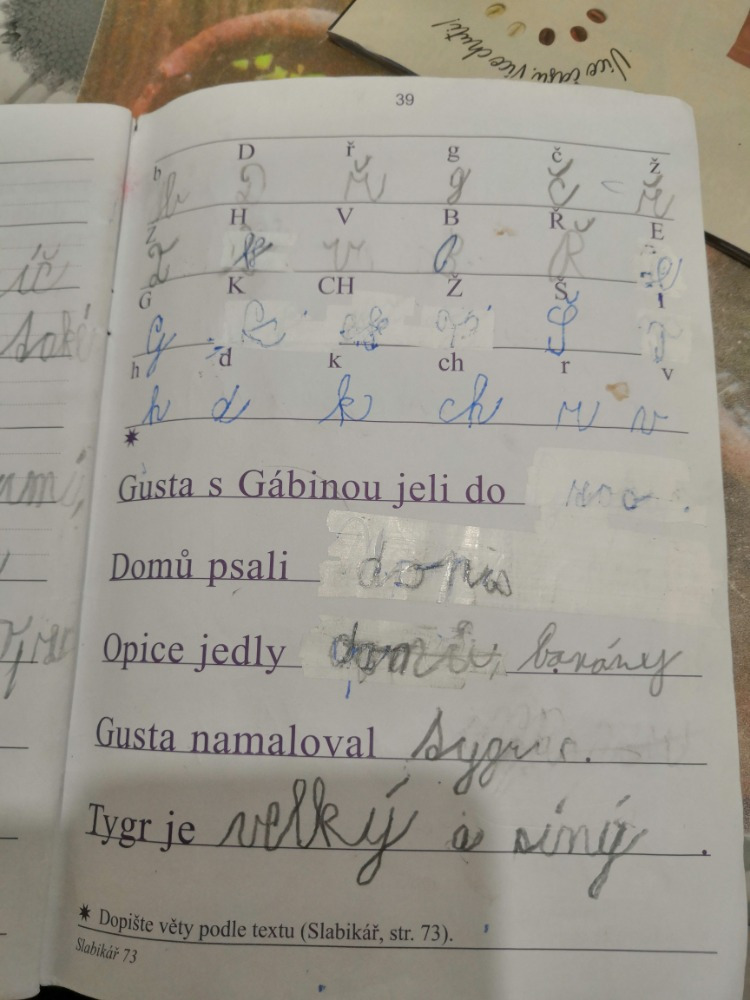 Více času, více chuti!
39
b D ř g č ž
b D ř g č ž
Z H V B Ř E
Z H V B Ř E
G K CH Ž Š I
G K Š
h d k ch r v
h d k ch r v
íč
Gusta s Gábinou jeli do zoo.
Domů psali dopis
Opice jedly banány
Gusta namaloval
Tygr je velký a silný.
✷ Dopište věty podle textu (Slabikář, str. 73).
Slabikář 73